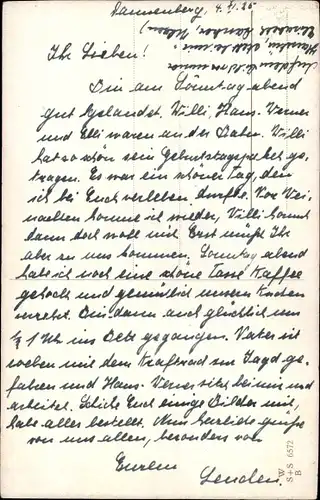 Dannenberg, 4. XI. 25
Ihr Lieben!
Bin am Sonntag abend
gut gelandet. Willi, Hans-Werner
und Elli waren an der Bahn. Willi
hat so schön sein Geburtstagspaket ge-
tragen. Es war ein schöner Tag, den
ich bei Euch verleben durfte. Vor Wei-
nachten komme ich wieder, Willi kommt
dann doch wohl mit. Erst müßt Ihr
aber zu uns kommen. Sonntag abend
habe ich noch eine schöne Tasse Kaffee
gekocht und gemütlich unseren Kuchen
verzehrt. Bin dann auch glücklich um
½ 1 Uhr ins Bett gegangen. Vater ist
soeben mit dem Kraftrad zur Jagd ge-
fahren und Hans-Werner sitzt bei mir und
arbeitet. Schicke Euch einige Bilder mit,
habe alles bestellt. Nun herzliche Grüße
von uns allen, besonders von
Eurem
Lenchen.
W
S+S 6572
B